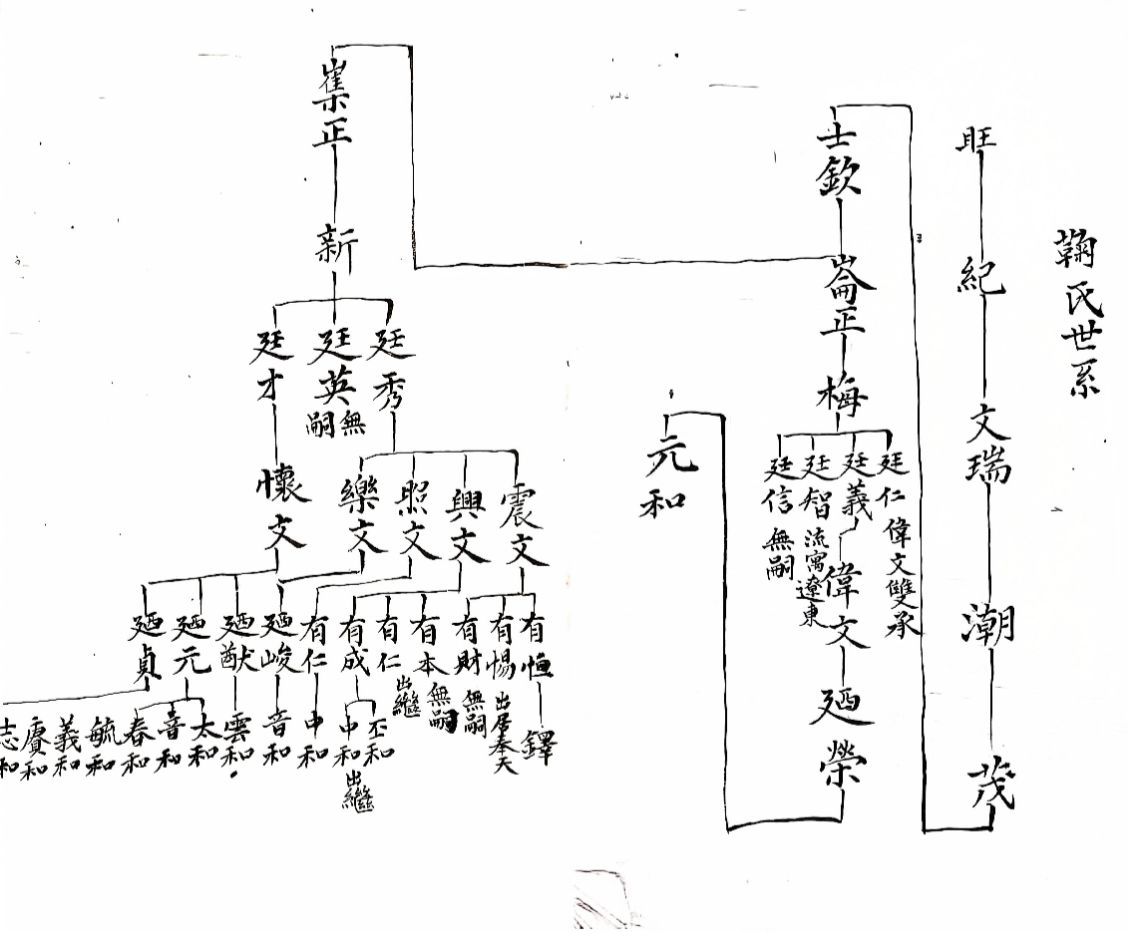 鞠氏世系
旺
紀
文瑞
潮
茂
士欽
崙正
梅
廷仁 偉文雙承
廷義
廷智 流寓遼東
廷信 無嗣
偉文
廼榮
元和
嶪正
新
廷秀
廷英 無嗣
廷才
震文
興文
照文
樂文
懷文
有恒
有惕 出居奉天
有財 無嗣
有本 無嗣
有仁 出繼
有成
有仁
廼峻
廼猷
廼元
廼貞
鐸
丕和
中和 出繼
中和
音和
雲和
太和
音和
春和
毓和
義和
賡和
志和